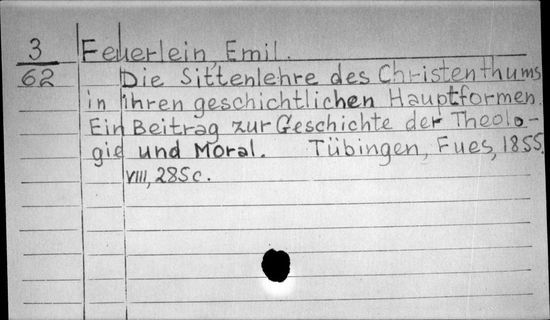 3
62
Feuerlein, Emil.
Die Sittenlehre des Christenthums
in ihren geschichtlichen Hauptformen.
Ein Beitrag zur Geschichte der Theolo-
gie und Moral. Tübingen, Fues, 1855.
VIII, 285 c.